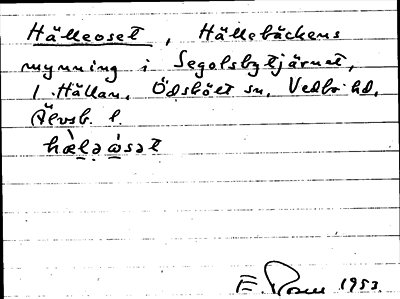 Hälleoset, Hällebäckens
mynning i Segolsbytjärnet,
l. Hällan. Ödsköet sn. Vedbo hd.
Älvsb. l.
hæ̀lə ὠsət
E. 1953